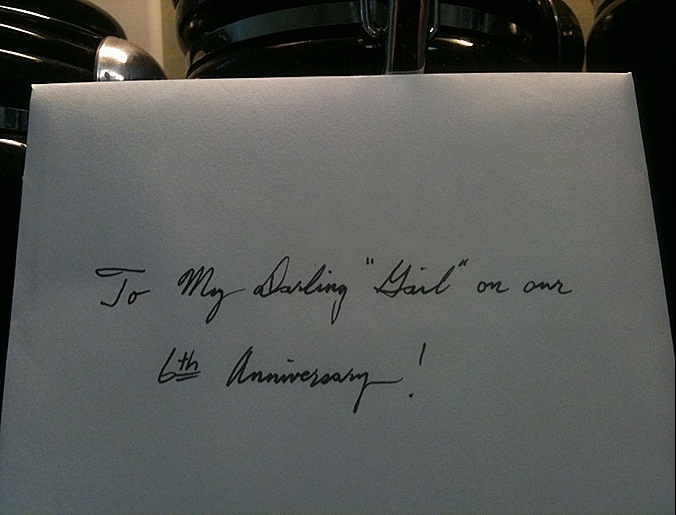 To My Darling "Gail" on our
6th Anniversary!